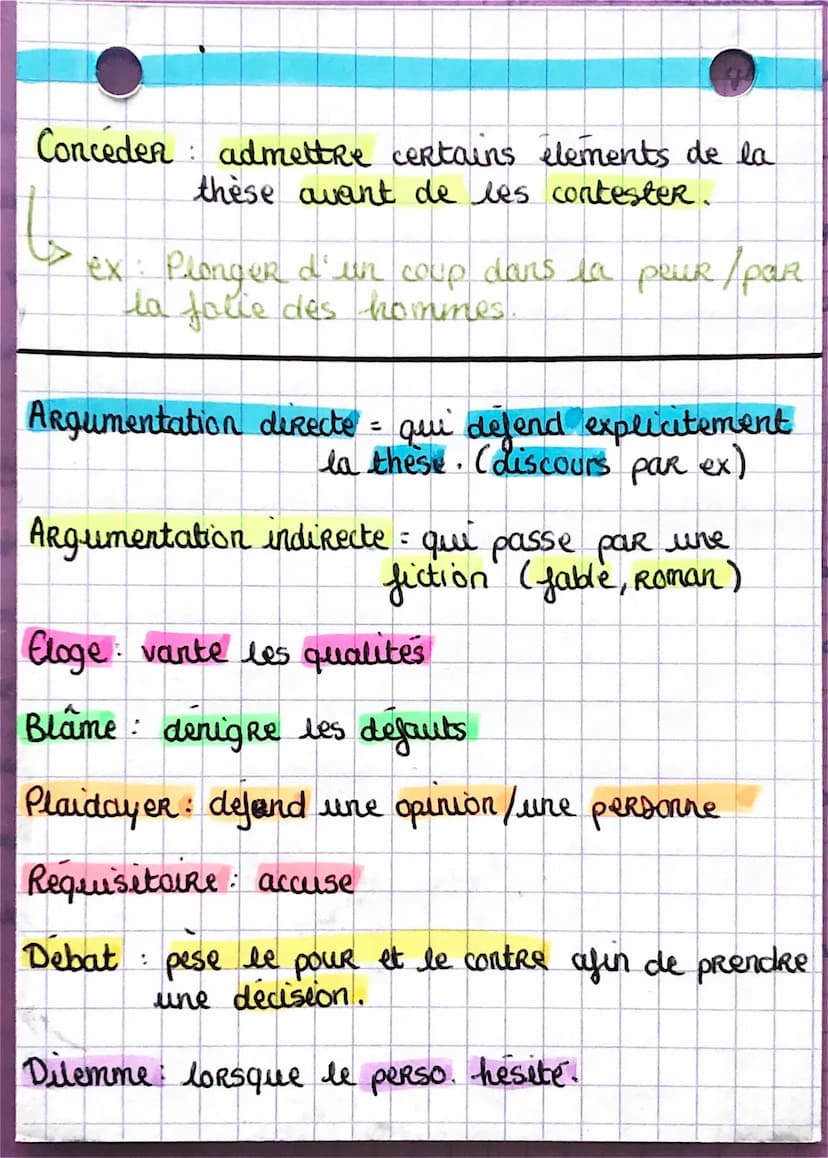 Concéder : admettre certains éléments de la
thèse avant de les contester.
ex : Plonger d'un coup dans la peur/par
la folie des hommes.
Argumentation directe = qui défend explicitement
la thèse. (discours par ex)
Argumentation indirecte = qui passe par une
fiction (fable, roman)
Eloge : vante les qualités
Blâme : dénigre les défauts
Plaidoyer : défend une opinion/une personne
Réquisitoire : accuse
Débat : pèse le pour et le contre afin de prendre
une décision.
Dilemme : lorsque le perso. hésite.